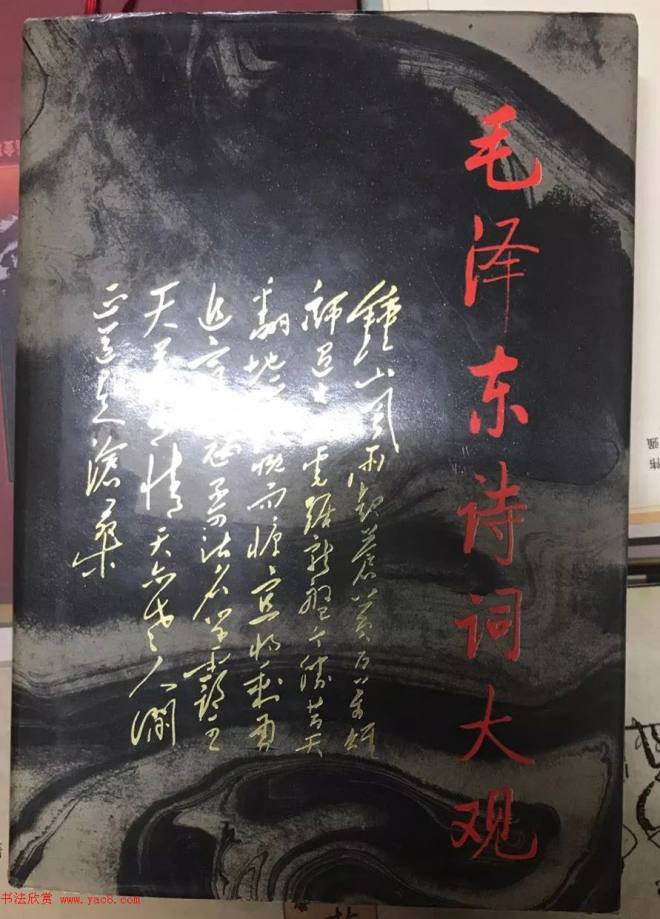 毛泽东诗词大观
鍾山风雨起蒼黄百万雄
師过大虎踞龙盘今胜昔天
翻地慨而慷宜将剩勇
追穷寇不可沽名学霸王
天若有情天亦老人间
正道是滄桑
书法欣赏 www.yac8.com